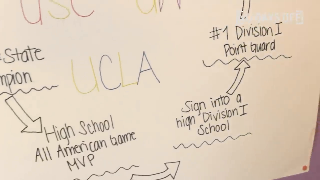 USC
#1 Division I
Point Guard
State
UCLA
Sign into a
high Division I
School
High School
All American Game
MVP